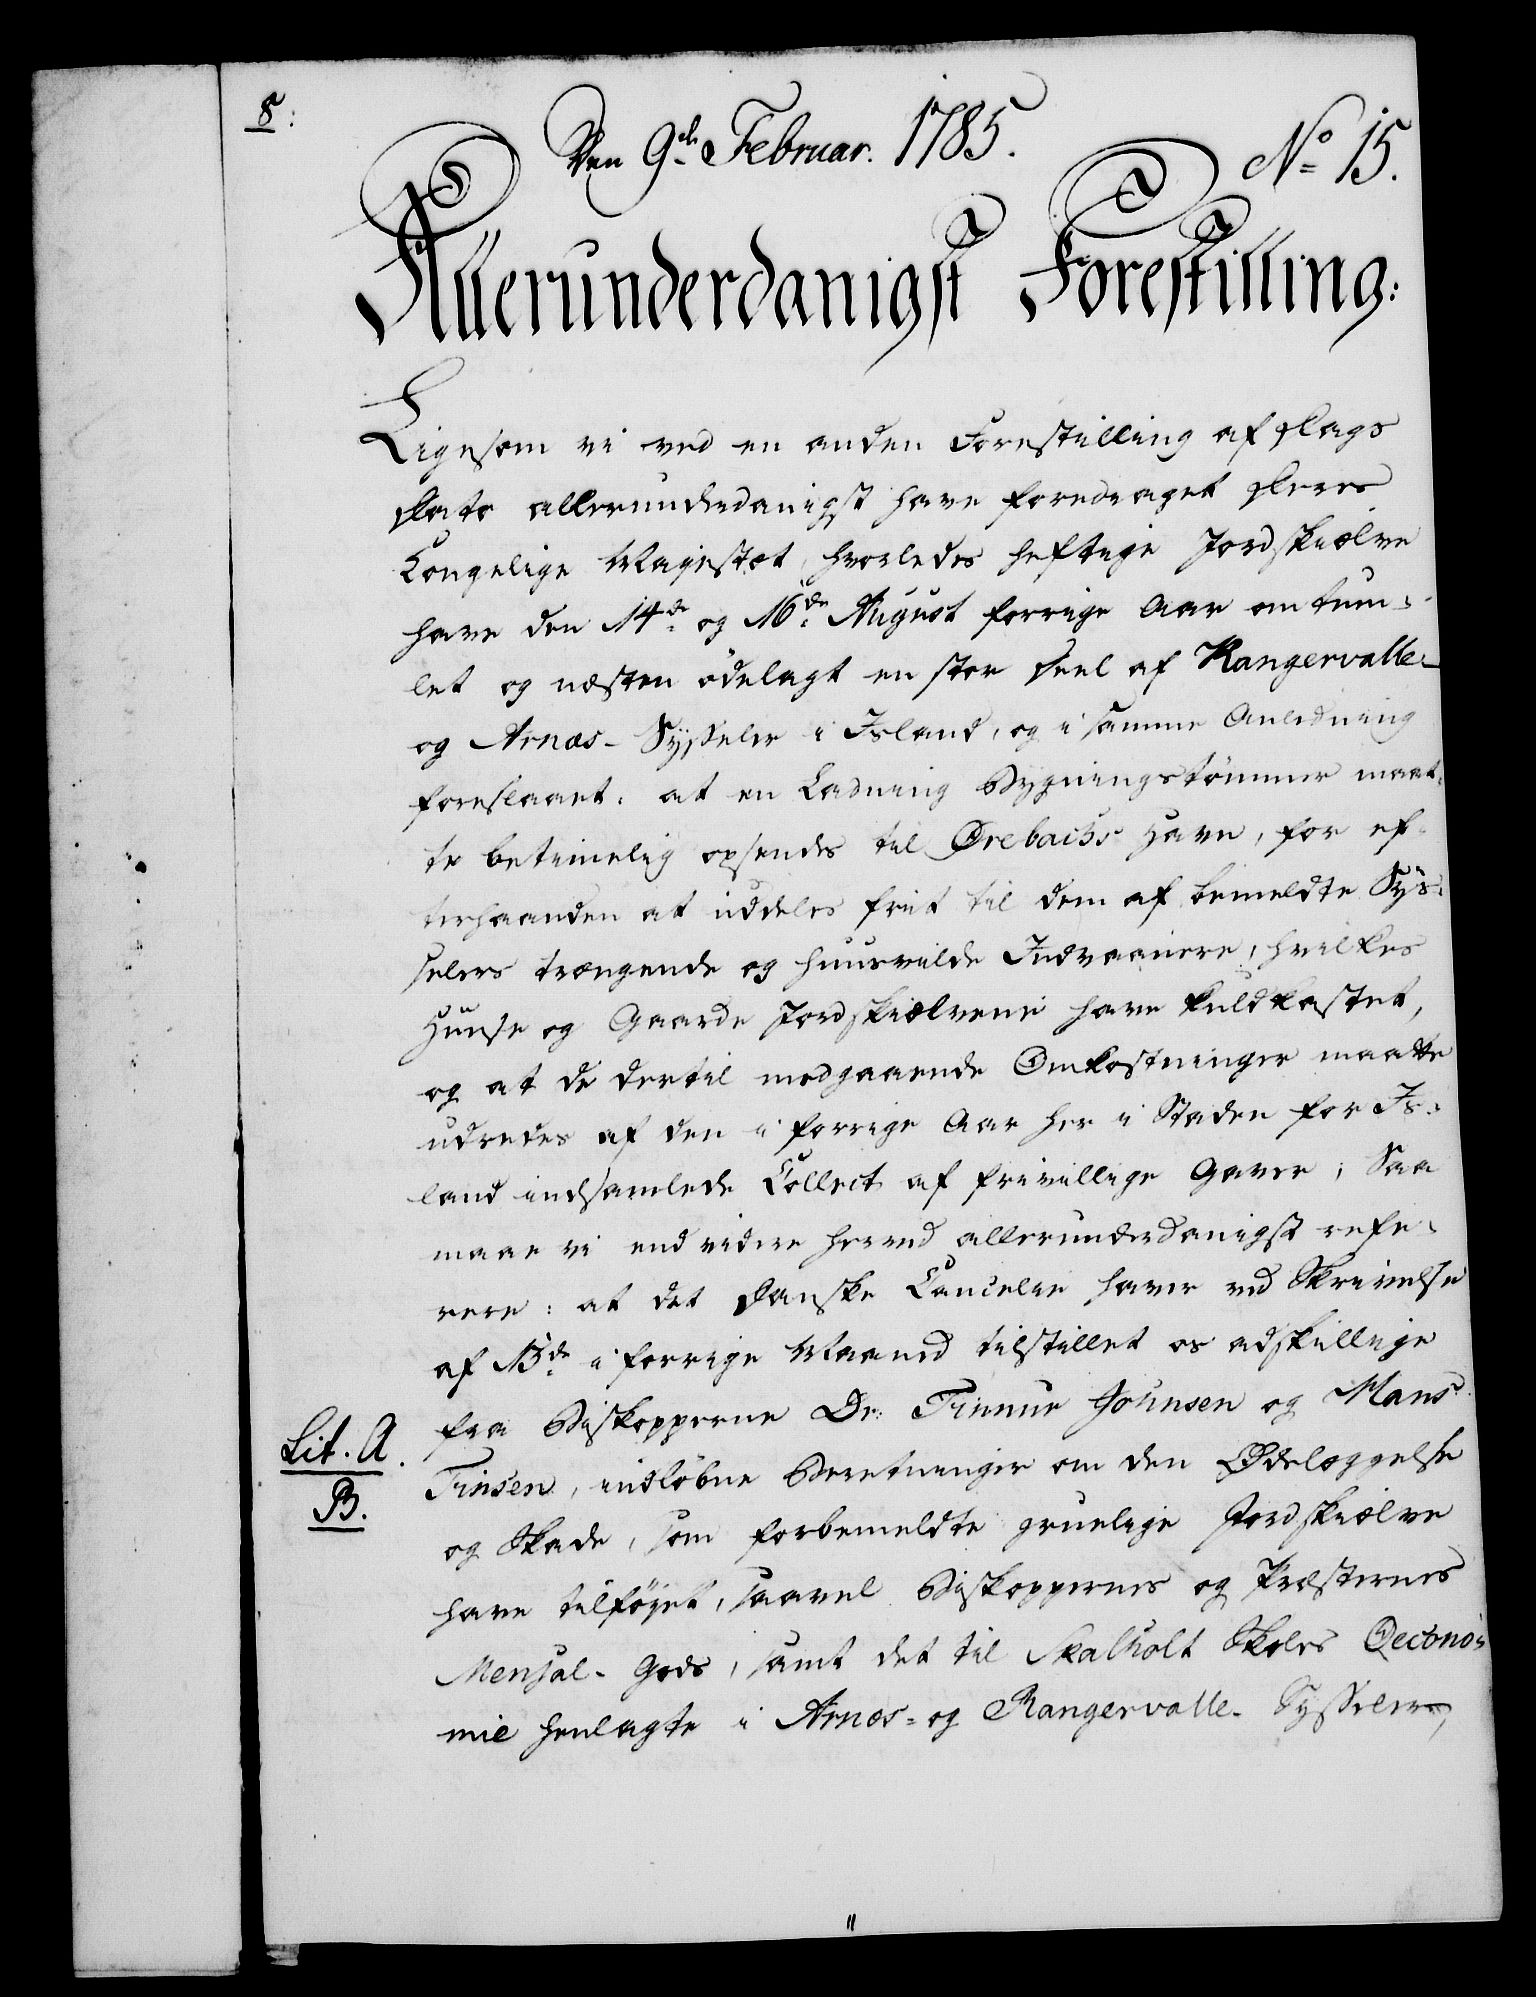 8:
Den 9de Februar. 1785.
No 15.
Allerunderdanigst Forestilling:
Ligesom vi ved en anden Forestilling af Dags
Dato allerunderdanigst have foredraget Deres
Kongelige Majestæt, hvorledes heftige Jordskiælve
have den 14de og 16de August forrige Aar omtum-
let og næsten ödelagt en stor Deel af Rangervalle-
og Arnæs- Sysseler i Island, og i samme Anledning
foreslaaet: at en Ladning Bygningstömmer maat-
te betimelig opsendes til Örebachs Havn, for ef-
terhaanden at uddeles frit til dem af bemeldte Sys-
selers trængende og huusvilde Indvaanere, hvilkes
Huuse og Gaarde Jordskiælvene have kuldkastet,
og at de dertil medgaaende Omkostninger maatte
udredes af den i forrige Aar her i Staden for Is-
land indsamlede Collect af frivillige Gaver; Saa
maae vi end videre herved allerunderdanigst refe-
rere: at det Danske Cancelie haver ved Skrivelse
af 13de i forrige Maaned tilstillet os adskillige
fra Biskopperne Dr. Finnur Johnsen og Hans
Finsen, indløbne Beretninger om den Ödelæggelse
Lit. A.
B.
og Skade, som forbemeldte gruelige Jordskiælve
have tilföjet, saavel Biskoppernes og Præsternes
Mensal- Gods, samt det til Skalholt Skoles Oecono-
mie henlagte i Arnæs- og Rangervalle- Sysseler,